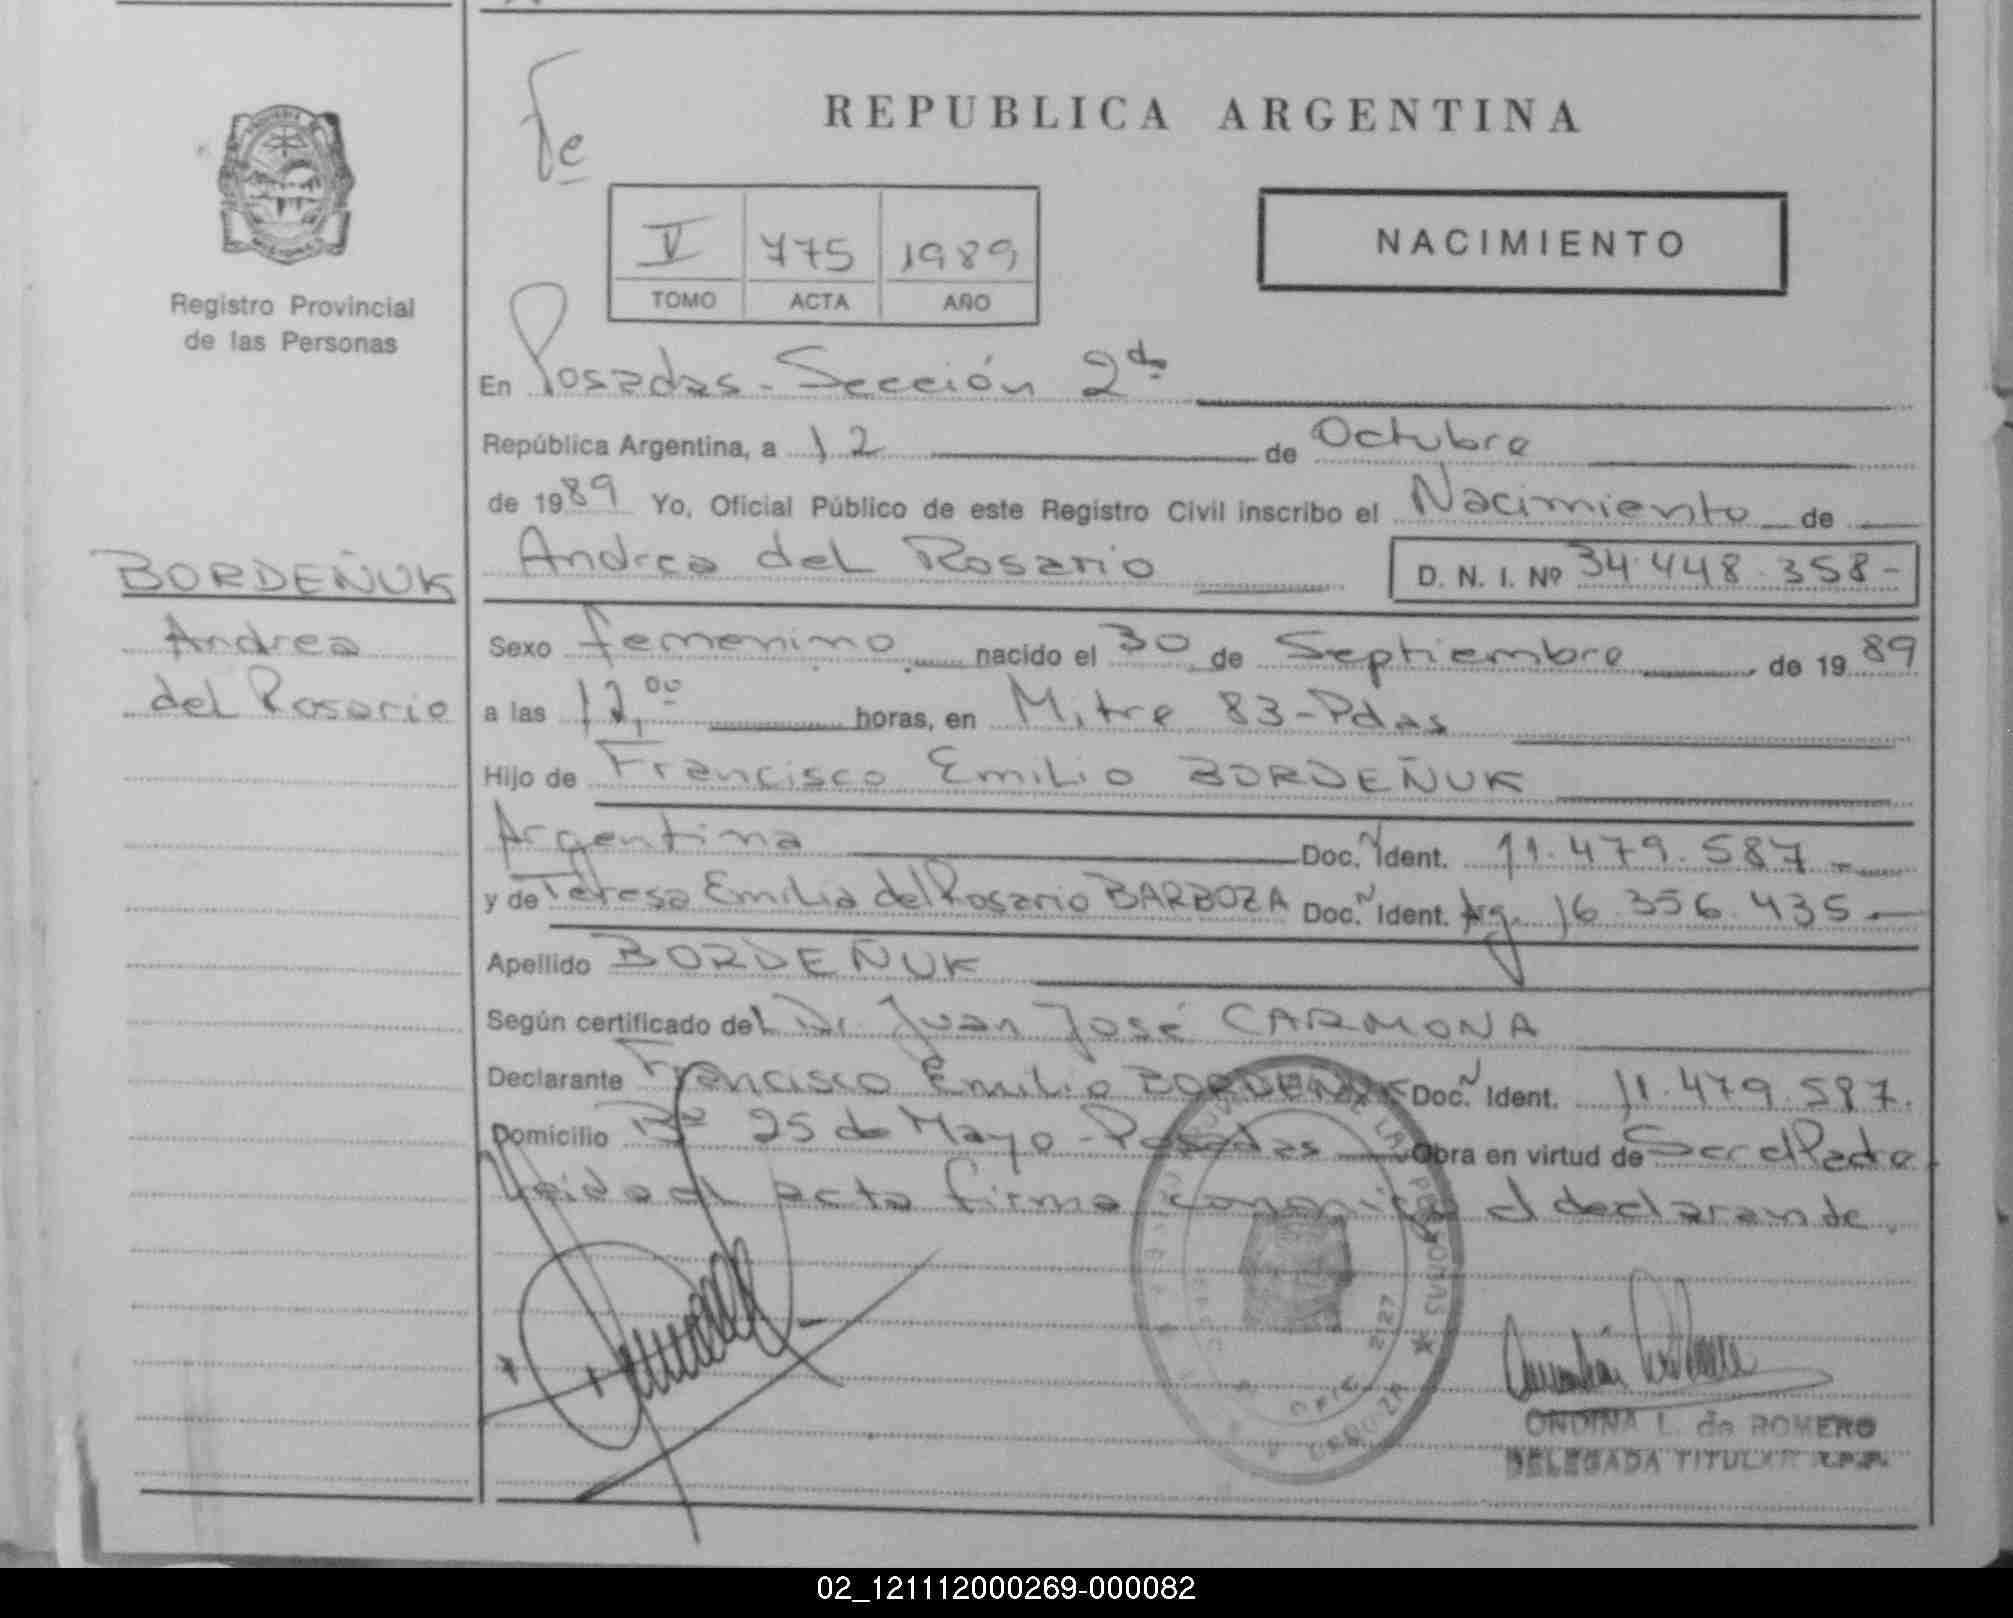 REPUBLICA ARGENTINA
Fe
V 775 1989
TOMO ACTA AÑO
NACIMIENTO
Registro Provincial
de las Personas
BORDEÑUK
Andrea
del Rosario
En Posadas - Sección 2da
República Argentina, a 12 de Octubre
de 1989 Yo, Oficial Público de este Registro Civil inscribo el Nacimiento de
Andrea del Rosario D. N. I. Nº 34.448.358-
Sexo femenino nacido el 30 de Septiembre de 1989
a las 12,00 horas, en Mitre 83-Pdas
Hijo de Francisco Emilio BORDEÑUK
Argentina Doc. Ident. 11.479.587-
y de Teresa Emilia del Rosario BARBOZA Doc. Ident. Arg. 16.356.435-
Apellido BORDEÑUK
Según certificado del Dr. Juan José CARMONA
Declarante Francisco Emilio BORDEÑUK Doc. Ident. 11.479.587.
Domicilio Bº 25 de Mayo-Posadas Obra en virtud de Ser el Padre
Leida el acta firma conmigo el declarante.
PERSONAS
OFIC 2127
ONDINA L. de ROMERO
DELEGADA TITULAR R.P.P.
02_121112000269-000082